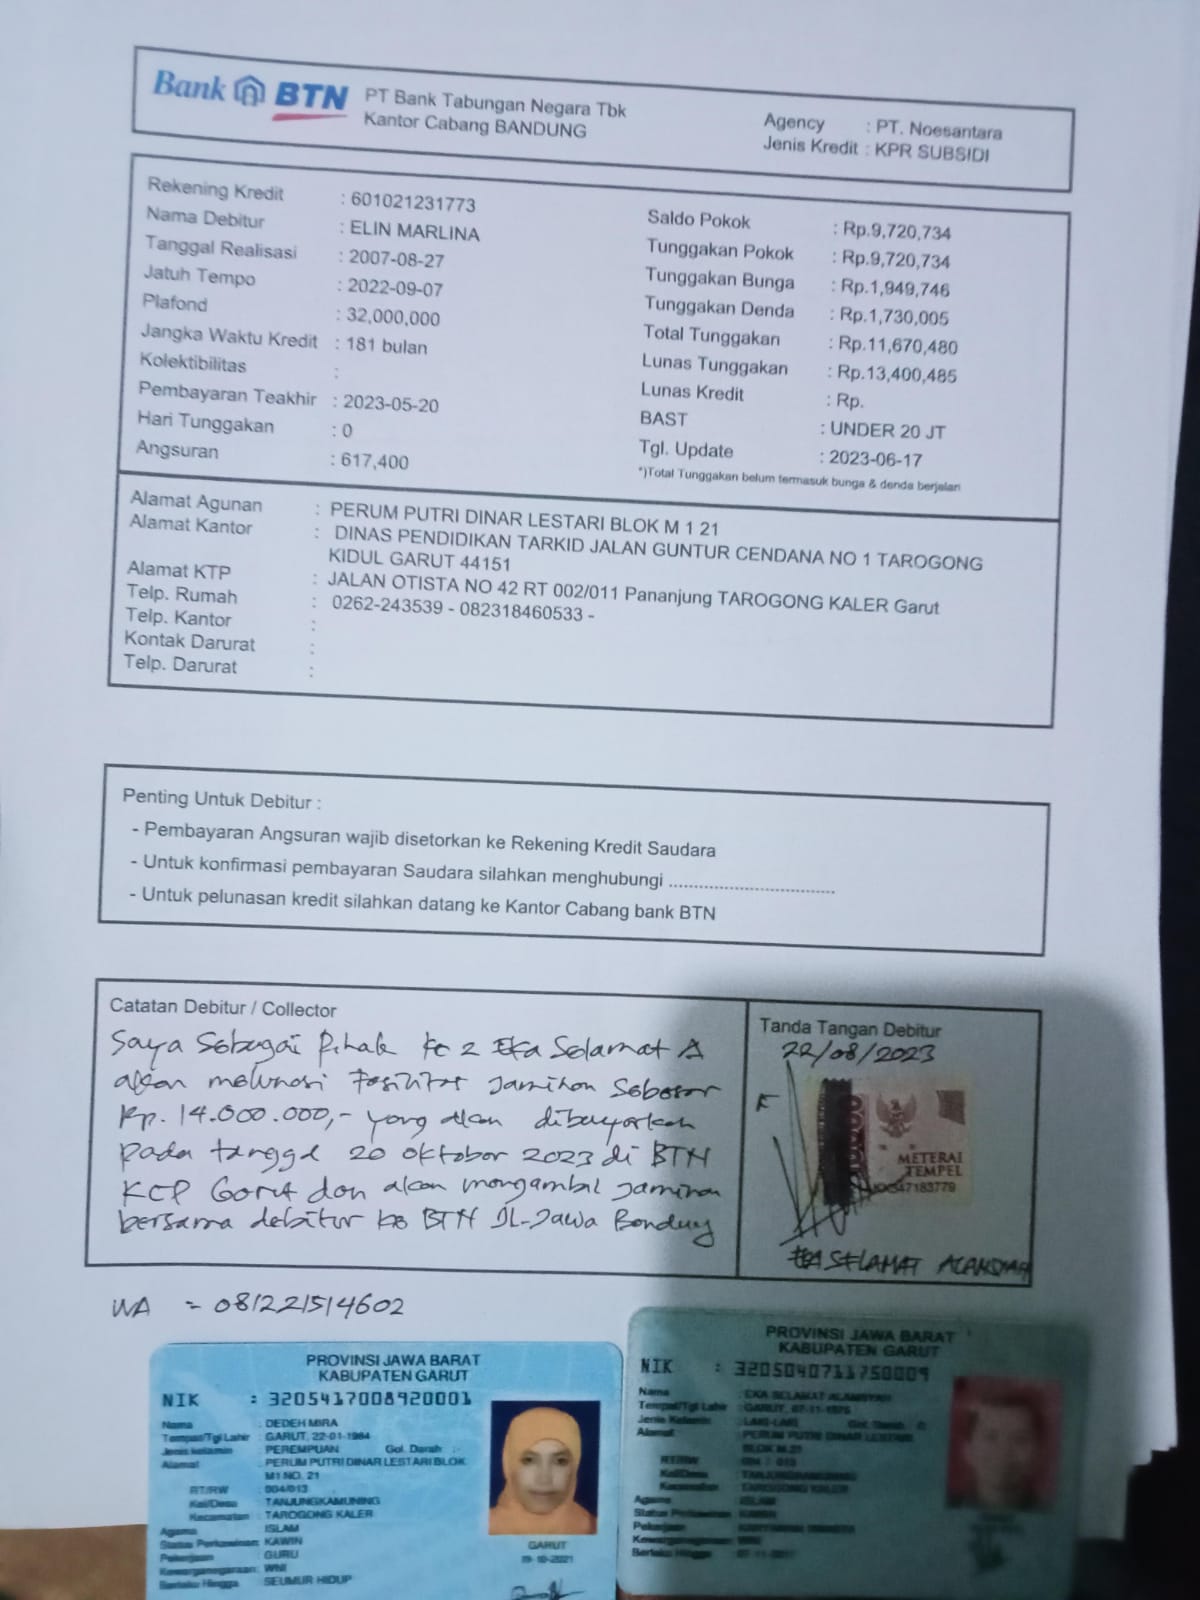 Bank BTN PT Bank Tabungan Negara Tbk
Kantor Cabang BANDUNG
Agency : PT. Noesantara
Jenis Kredit : KPR SUBSIDI
Rekening Kredit : 601021231773
Nama Debitur : ELIN MARLINA
Tanggal Realisasi : 2007-08-27
Jatuh Tempo : 2022-09-07
Plafond : 32,000,000
Jangka Waktu Kredit : 181 bulan
Kolektibilitas :
Pembayaran Teakhir : 2023-05-20
Hari Tunggakan : 0
Angsuran : 617,400
Saldo Pokok : Rp.9,720,734
Tunggakan Pokok : Rp.9,720,734
Tunggakan Bunga : Rp.1,949,746
Tunggakan Denda : Rp.1,730,005
Total Tunggakan : Rp.11,670,480
Lunas Tunggakan : Rp.13,400,485
Lunas Kredit : Rp.
BAST : UNDER 20 JT
Tgl. Update : 2023-06-17
*)Total Tunggakan belum termasuk bunga & denda berjalan
Alamat Agunan : PERUM PUTRI DINAR LESTARI BLOK M 1 21
Alamat Kantor : DINAS PENDIDIKAN TARKID JALAN GUNTUR CENDANA NO 1 TAROGONG
KIDUL GARUT 44151
Alamat KTP : JALAN OTISTA NO 42 RT 002/011 Pananjung TAROGONG KALER Garut
Telp. Rumah : 0262-243539 - 082318460533 -
Telp. Kantor :
Kontak Darurat :
Telp. Darurat :
Penting Untuk Debitur :
- Pembayaran Angsuran wajib disetorkan ke Rekening Kredit Saudara
- Untuk konfirmasi pembayaran Saudara silahkan menghubungi .................................
- Untuk pelunasan kredit silahkan datang ke Kantor Cabang bank BTN
Catatan Debitur / Collector
Saya Sebagai Pihak ke 2 Eka Selamat A
akan melunasi Fasilitas Jaminan Sebesar
Rp. 14.000.000,- yang akan dibayarkan
pada tanggal 20 Oktober 2023 di BTN
KCP Garut dan akan mengambil Jaminan
bersama debitur ke BTN Jl-Jawa Bandung
Tanda Tangan Debitur
22/08/2023
METERAI
TEMPEL
47183779
EKA SELAMAT ALAMSYAH
WA = 081221514602
PROVINSI JAWA BARAT
KABUPATEN GARUT
NIK : 3205417008920001
Nama : DEDEH MIRA
Tempat/Tgl Lahir : GARUT, 22-01-1984
Jenis kelamin : PEREMPUAN Gol. Darah :-
Alamat : PERUM PUTRI DINAR LESTARI BLOK
M1 NO. 21
RT/RW : 004/013
Kel/Desa : TANJUNGKAMUNING
Kecamatan : TAROGONG KALER
Agama : ISLAM
Status Perkawinan: KAWIN
Pekerjaan : GURU
Kewarganegaraan: WNI
Berlaku Hingga : SEUMUR HIDUP
GARUT
19-10-2021
PROVINSI JAWA BARAT
KABUPATEN GARUT
NIK : 3205040711750009
Nama : EKA SELAMAT ALAMSYAH
Tempat/Tgl Lahir : GARUT, 07-11-1975
Jenis Kelamin : LAKI-LAKI Gol. Darah
Alamat : PERUM PUTRI DINAR LESTARI
BLOK M.21
RT/RW : 004 / 013
Kel/Desa : TANJUNGKAMUNING
Kecamatan : TAROGONG KALER
Agama : ISLAM
Status Perkawinan
Pekerjaan
Kewarganegaraan: WNI
Berlaku Hingga